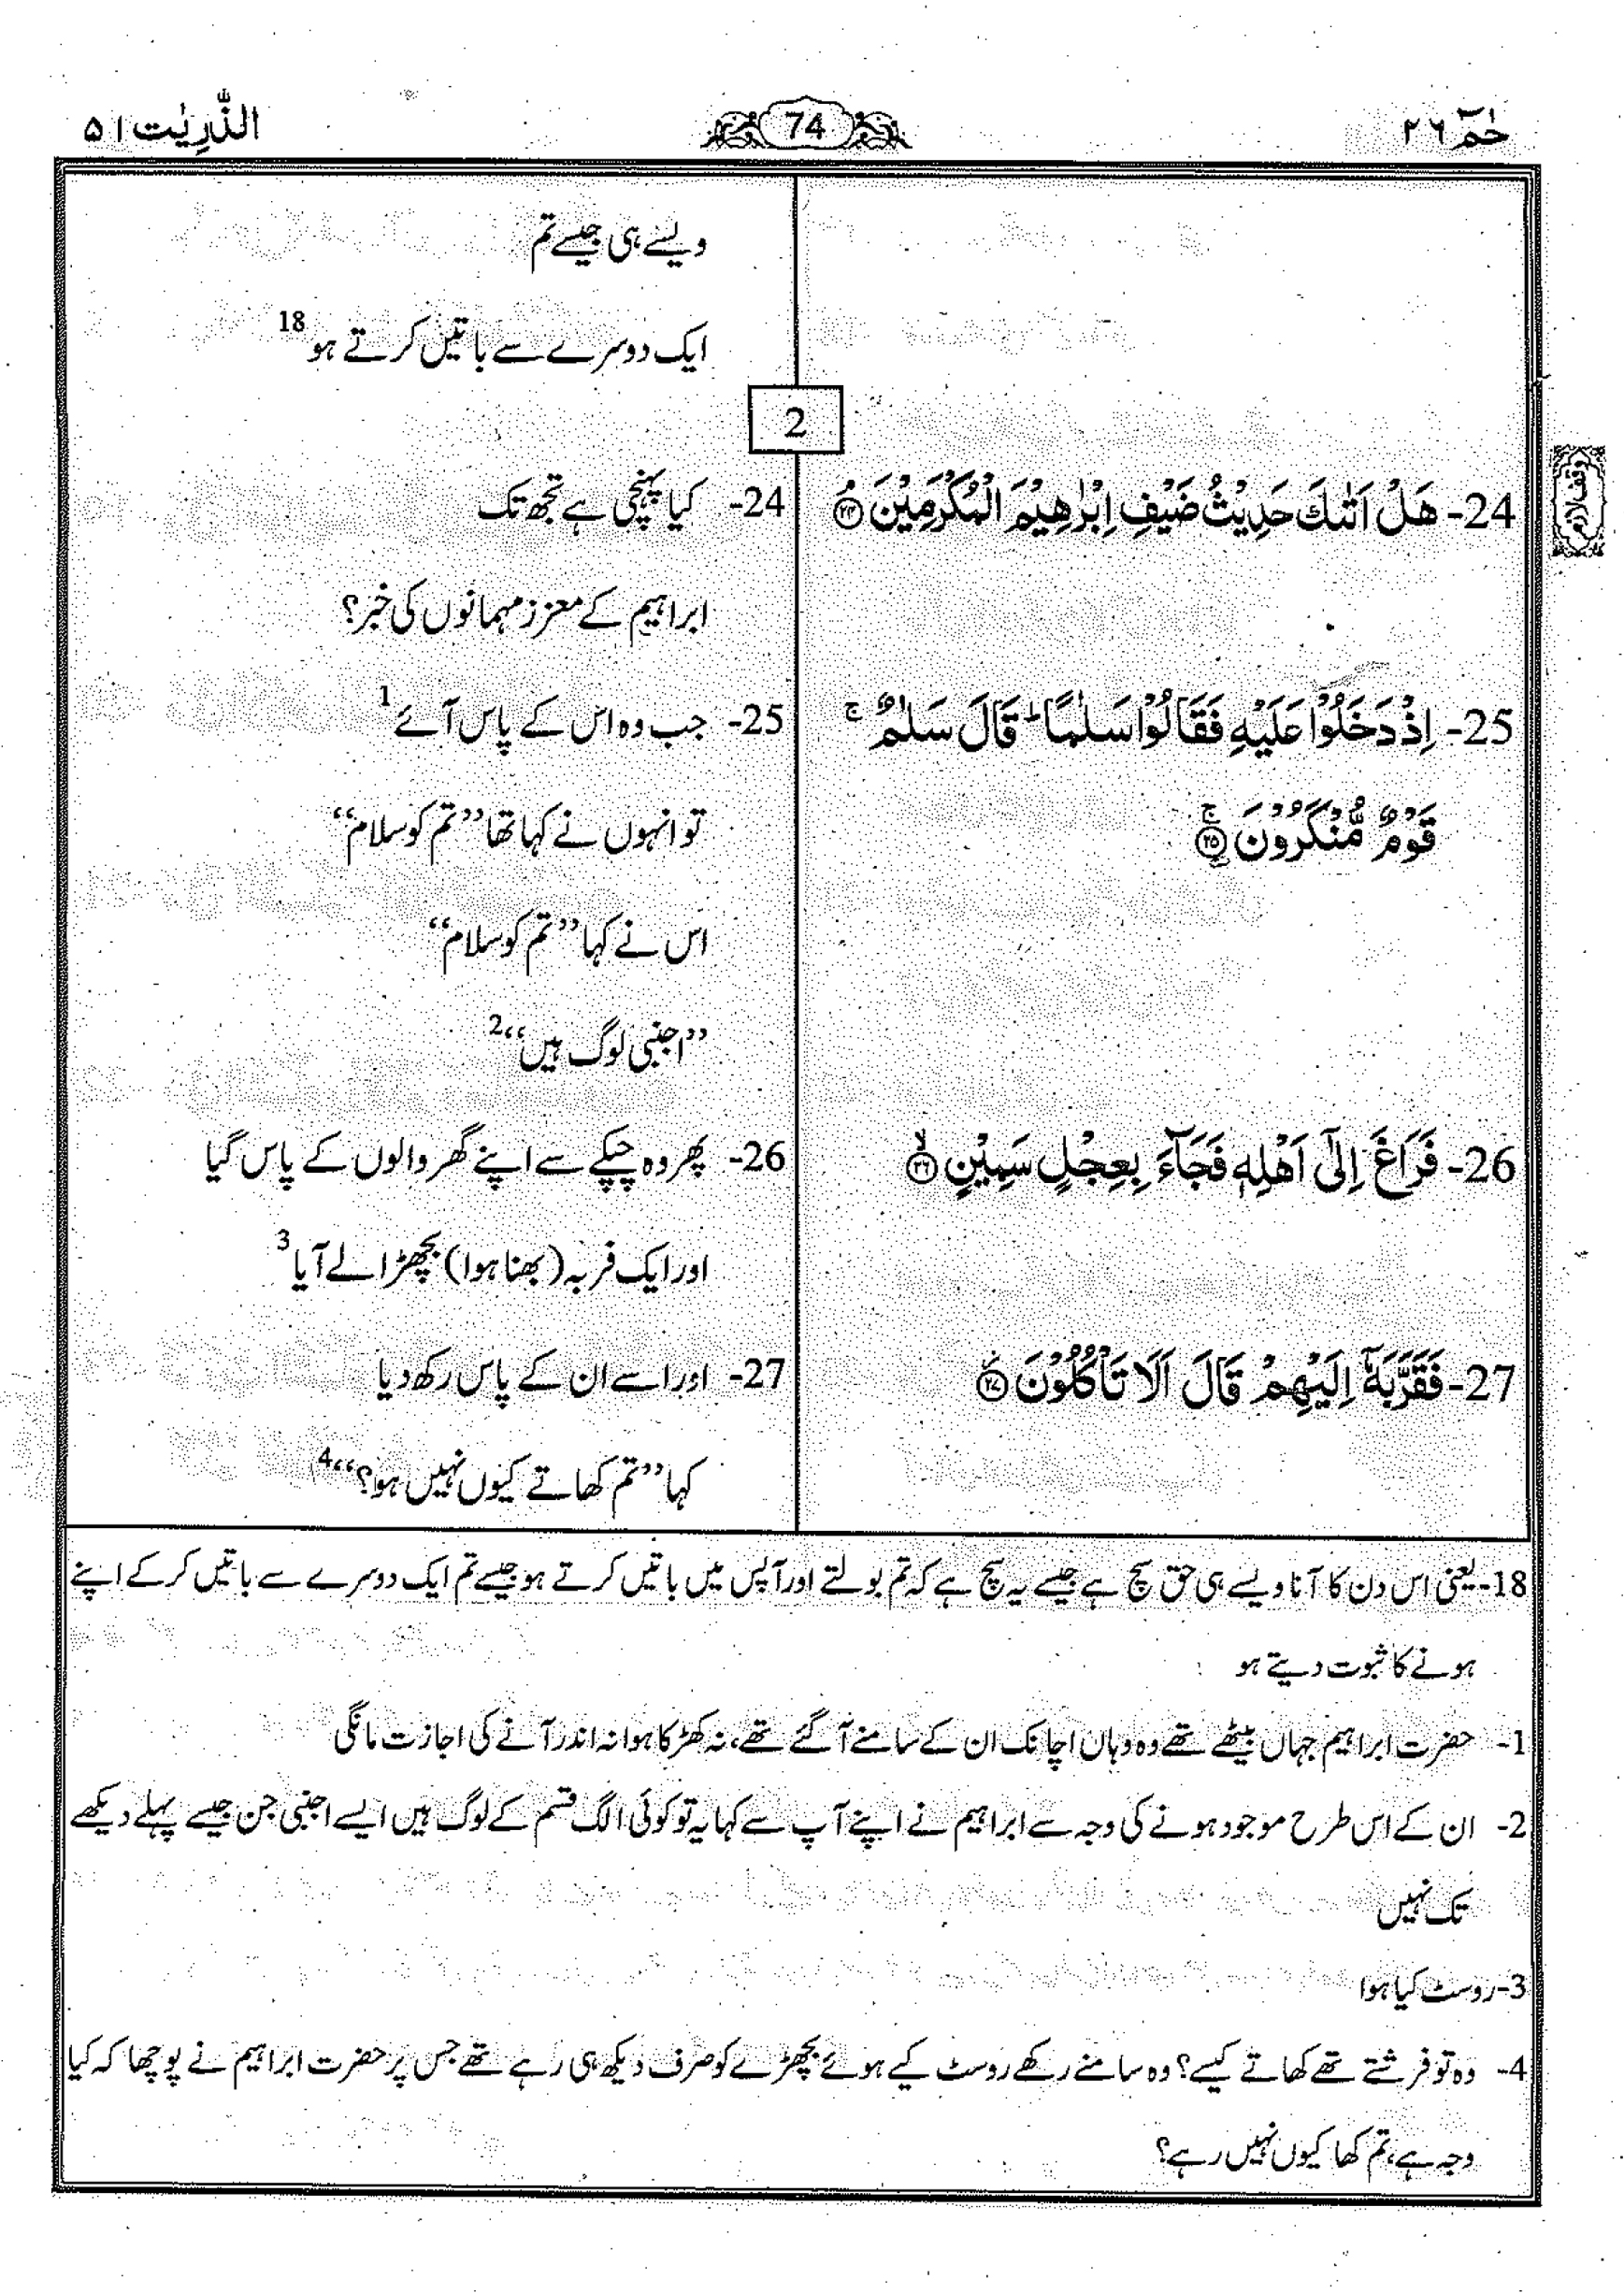 حٰمٓ ٢٦
74
الذّٰرِيٰت ٥١
ویسے ہی جیسے تم
ایک دوسرے سے باتیں کرتے ہو 18
2
وقف لازم
24- هَلْ اَتٰىكَ حَدِيْثُ ضَيْفِ اِبْرٰهِيْمَ الْمُكْرَمِيْنَ ۘ ﴿٢٤﴾
24- کیا پہنچی ہے تجھ تک
ابراہیم کے معزز مہمانوں کی خبر؟
25- اِذْ دَخَلُوْا عَلَيْهِ فَقَالُوْا سَلٰمًا ؕ قَالَ سَلٰمٌ ۚ
قَوْمٌ مُّنْكَرُوْنَ ۚ ﴿٢٥﴾
25- جب وہ اس کے پاس آئے 1
تو انہوں نے کہا تھا ”تم کو سلام“
اس نے کہا ”تم کو سلام“
”اجنبی لوگ ہیں“ 2
26- فَرَاغَ اِلٰٓى اَهْلِهٖ فَجَآءَ بِعِجْلٍ سَمِيْنٍ ۙ ﴿٢٦﴾
26- پھر وہ چپکے سے اپنے گھر والوں کے پاس گیا
اور ایک فربہ (بھنا ہوا) بچھڑا لے آیا 3
27- فَقَرَّبَهٗٓ اِلَيْهِمْ قَالَ اَلَا تَاْكُلُوْنَ ۫ ﴿٢٧﴾
27- اور اسے ان کے پاس رکھ دیا
کہا ”تم کھاتے کیوں نہیں ہو؟“ 4
18- یعنی اس دن کا آنا ویسے ہی حق سچ ہے جیسے یہ سچ ہے کہ تم بولتے اور آپس میں باتیں کرتے ہو جیسے تم ایک دوسرے سے باتیں کر کے اپنے
ہونے کا ثبوت دیتے ہو
1- حضرت ابراہیم جہاں بیٹھے تھے وہ وہاں اچانک ان کے سامنے آ گئے تھے، نہ کھڑکا ہوا نہ اندر آنے کی اجازت مانگی
2- ان کے اس طرح موجود ہونے کی وجہ سے ابراہیم نے اپنے آپ سے کہا یہ تو کوئی الگ قسم کے لوگ ہیں ایسے اجنبی جن جیسے پہلے دیکھے
تک نہیں
3- روسٹ کیا ہوا
4- وہ تو فرشتے تھے کھاتے کیسے؟ وہ سامنے رکھے روسٹ کیے ہوئے بچھڑے کو صرف دیکھ ہی رہے تھے جس پر حضرت ابراہیم نے پوچھا کہ کیا
وجہ ہے، تم کھا کیوں نہیں رہے؟